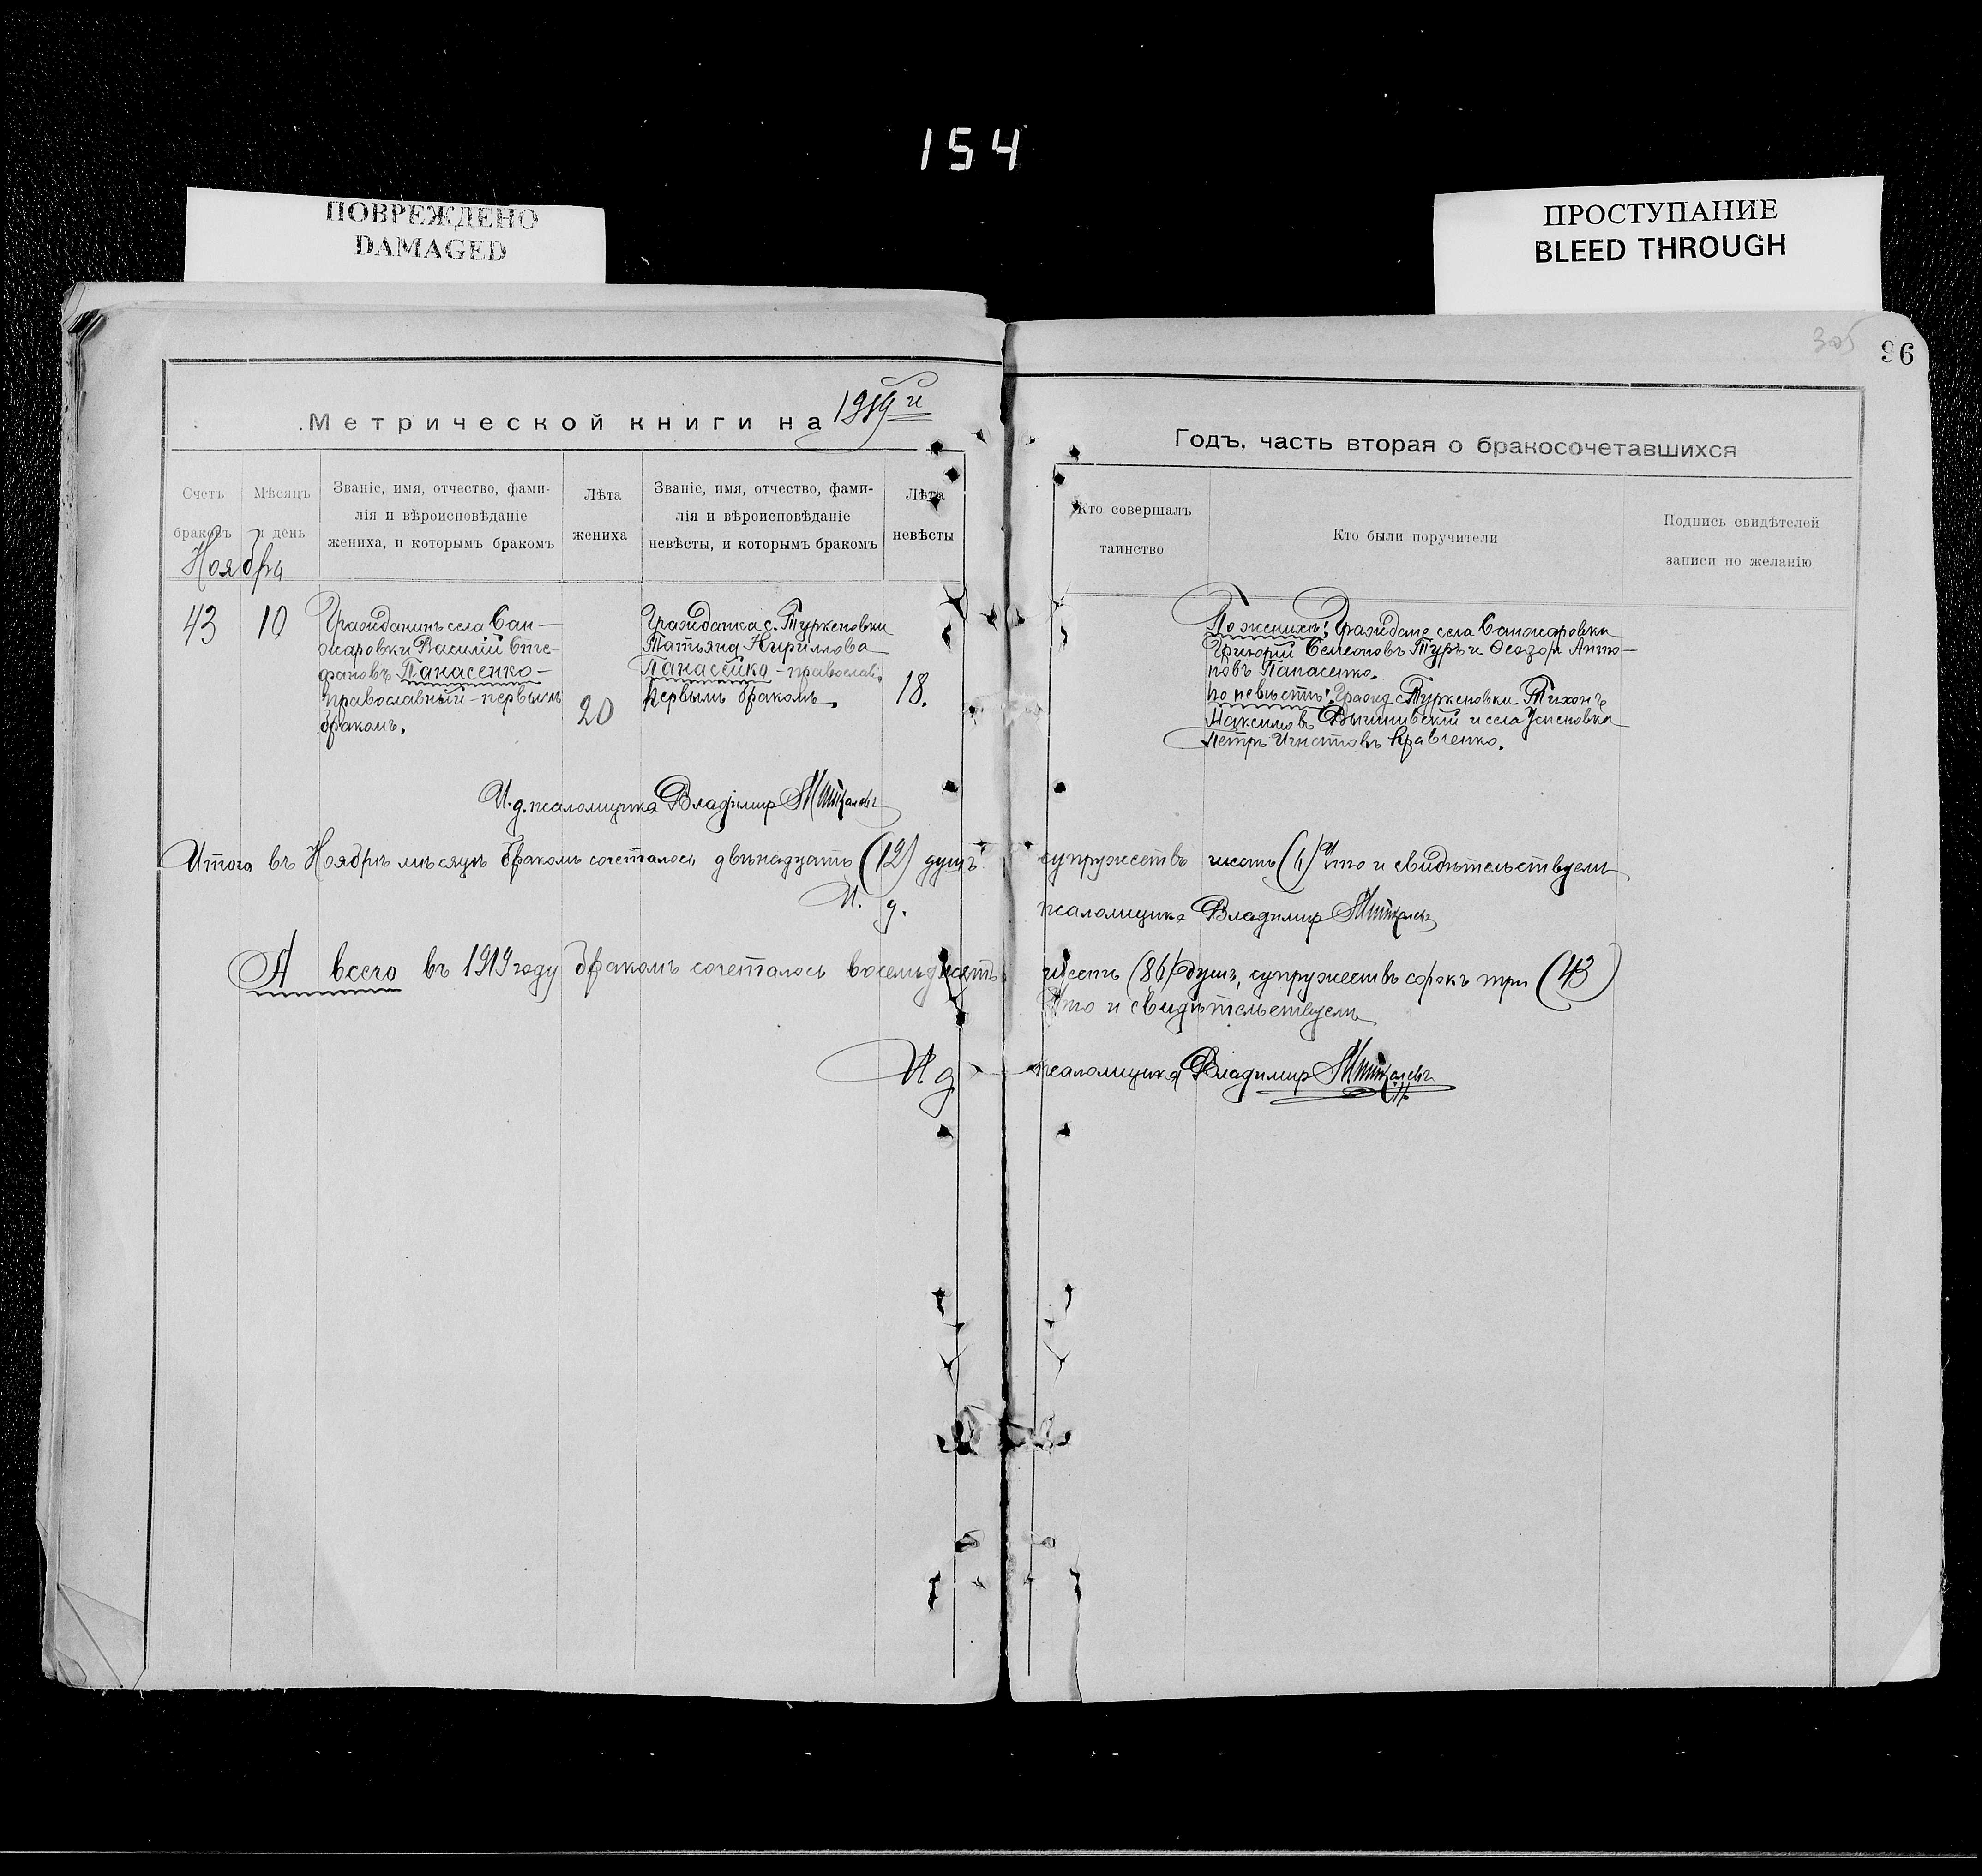 154
ПОВРЕЖДЕНО
DAMAGED
ПРОСТУПАНИЕ
BLEED THROUGH
305
96
Метрической книги на 1919 й
Годъ, часть вторая о бракосочетавшихся
Счетъ
браковъ
Мѣсяцъ
и день
Званіе, имя, отчество, фами-
лія и вѣроисповѣданіе
жениха, и которымъ бракомъ
Лѣта
жениха
Званіе, имя, отчество, фами-
лія и вѣроисповѣданіе
невѣсты, и которымъ бракомъ
Лѣта
невѣсты
Кто совершалъ
таинство
Кто были поручители
Подпись свидѣтелей
записи по желанію
Ноября
43
10
Гражданинъ села Сан-
жаровки Василій Сте-
фановъ Панасенко-
православный - первымъ
бракомъ.
20
Гражданка с. Туркеновки
Татьяна Кириллова
Панасенко - православ.
первымъ бракомъ.
18.
По женихѣ: Граждане села Санжаровки
Григорій Семеоновъ Туръ и Антo-
новъ Панасенко.
по невѣстѣ: Гражд. с. Туркеновки Тихонъ
Максимовъ и села Успеновка
Петръ Игнатовъ Кравченко.
И. д. псаломщика Владиміръ
Итого въ Ноябрѣ мѣсяцѣ бракомъ сочеталось двѣнадцать (12) душъ супружествъ шесть (6) Что и свидѣтельствуемъ
И. д. псаломщика Владиміръ
А всего въ 1919 году бракомъ сочеталось восемьдесятъ шесть (86) душъ, супружествъ сорокъ три (43)
Что и свидѣтельствуемъ
И д псаломщика Владиміръ